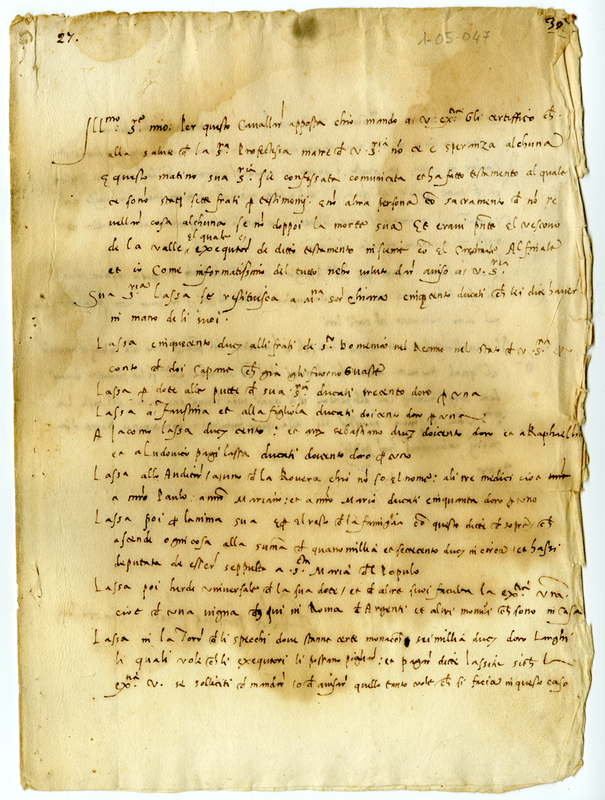 27. 1-05-047 39
Ill.mo S.re mio. Per questo Cavallar apposta chio mando a V. Ex.tia Gli certiffico ch
alla salute d la S.ra Profectissa matre d V. S.ria nō ce e speranza alchuna
E questo matino sua S.ria sie confessata comunicata et ha fatto testamento al quale
ce sono stati sette frati p testimonij. Ne altra persona cō sacramento d nō re
vellar cosa alchuna se nō doppoi la morte sua. Et eravi pnte el vescovo
de la valle, el quale e exequtor de ditto testamento insieme cō el Cardinale
et io Come informatissimo del tutto neho voluto dar aviso a V. S.ria
Sua S.ria Lassa se restituisca a M.a sor chiara cinqcento ducati ch lei die haver
in mano deli suoi.
Lassa cinquecento duc. alli frati de S.to Domenico nel Stato d V. S.ria p
conto d doi Capane ch gia gli fuorno Guaste
Lassa p dote alle putte d sua S.ria ducati trecento doro p una
Lassa a Faustina et alla figliola ducati doicento doro p una
A Jacomo lassa duc. cento: et a m. sebastiano duc. doicento doro et a Raphaell
et a Ludovico paggi lassa ducati doicento doro p uno
Lassa allo Auditor d la Rovera chio nō so el nome: ali tre medici cioe
a m.ro Paulo: a m.ro Mariano: et a m.ro Mario ducati cinquanta doro p uno
Lassa poi p lanima sua el resto d la famiglia cō questo ditte d sopra, ch
ascende ogni cosa alla summa d quatro millia et settecento duc. in circa, et hassi
deputata de esser seppulta a S.ta Maria dl Populo
Lassa poi herede universale d la sua dote, et d altre suoi faculta la ex.tia vra
cioe d una vigna qui in Roma d Argenti et altri mobili ch sono in casa
Lassa in la Torr d li specchi dove stanno certe monache sei millia duc. doro Larghi
li quali vole ch li exequtori li possano pigliare, et pagar ditte lassite sich
ex.tia V. se solliciti d mandar, o d avisar quello tanto vole ch si facia in questo caso